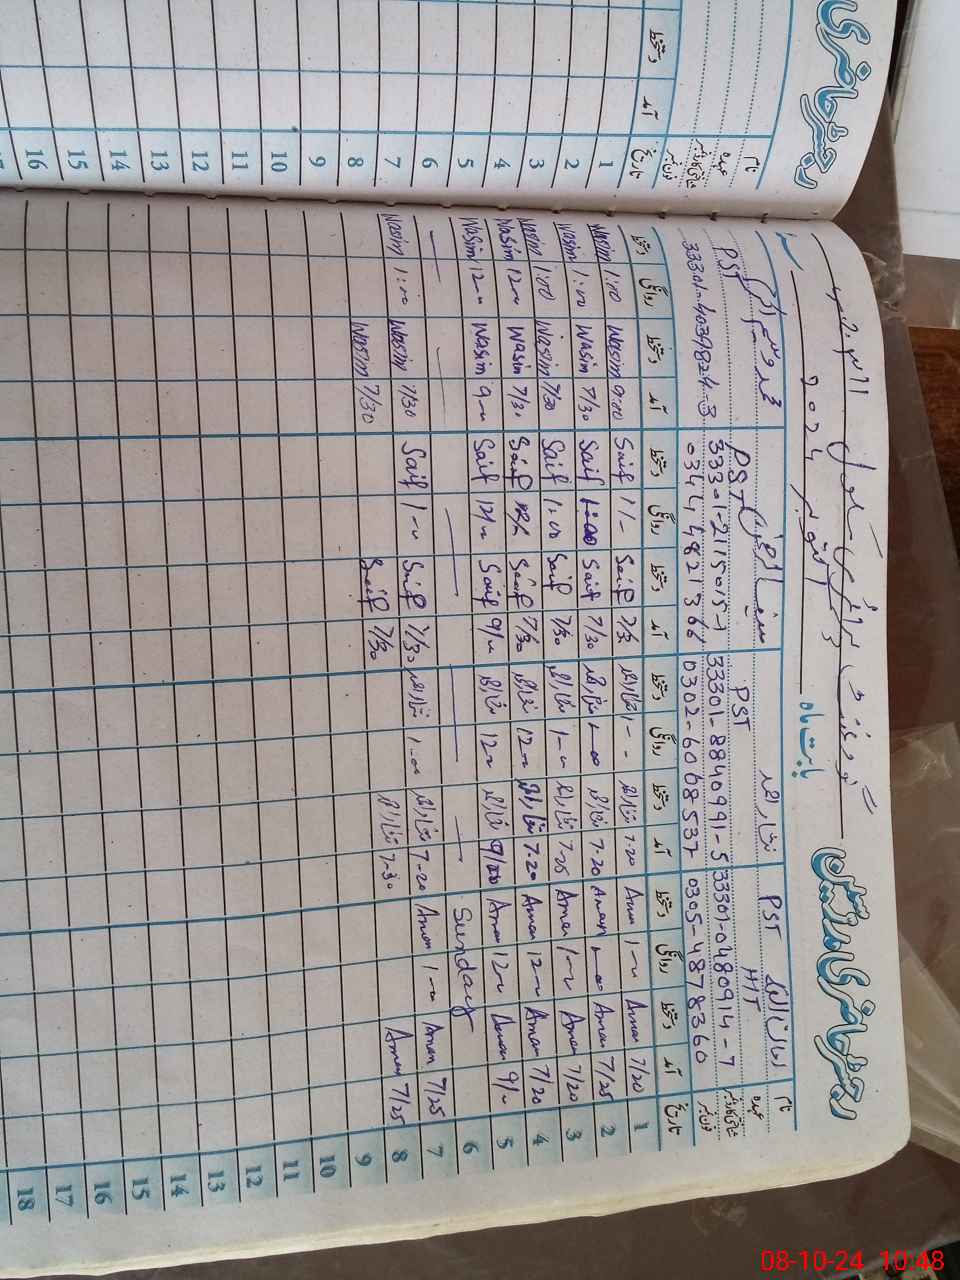 رجسٹر حاضری
رجسٹر حاضری مدرسین
گورنمنٹ
بابت ماہ
اکتوبر 2024
نام
امان اللہ
نثار احمد
سیف الرحمن
محمد وسیم
عہدہ
PST HT
PST
PST
PST
شناختی کارڈ نمبر
33301-0480914-7
33301-8840991-5
33301-2115015-1
33301-4039824-3
فون نمبر
0305-4878360
0302-6068537
0344 4821366
تاریخ آمد دستخط روانگی دستخط آمد دستخط روانگی دستخط آمد دستخط روانگی دستخط آمد دستخط روانگی دستخط
1 7/20 Aman 1-~ Aman 7.20 نثار احمد 1-- نثار احمد 7/30 Saif 1/- Saif 9:00 Wasim 1:00 Wasim
2 7/25 Aman 1-00 Aman 7.20 نثار احمد 1-00 نثار احمد 7/30 Saif 1:00 Saif 7/30 Wasim 1:00 Wasim
3 7/20 Aman 1-~ Aman 7.25 نثار احمد 1-~ نثار احمد 7/30 Saif 1:00 Saif 7/30 Wasim 1:00 Wasim
4 7/20 Aman 12-~ Aman 7.20 نثار احمد 12-~ نثار احمد 7/30 Saif Saif 7/30 Wasim 12-~ Wasim
5 9/~ Aman 12-~ Aman نثار احمد 12-~ نثار احمد 9/~ Saif 12/~ Saif 9-~ Wasim 12-~ Wasim
6 Sunday
7 7/25 Aman 1-~ Aman 7-20 نثار احمد 1-00 نثار احمد 7/30 Saif 1-~ Saif 7/30 Wasim 1:00 Wasim
8 7/25 Aman 7-30 نثار احمد 7/30 Saif 7/30 Wasim
9
10
11
12
13
14
15
16
17
18
نام
عہدہ
شناختی کارڈ نمبر
فون نمبر
تاریخ آمد دستخط
1
2
3
4
5
6
7
8
9
10
11
12
13
14
15
16
08-10-24 10:48